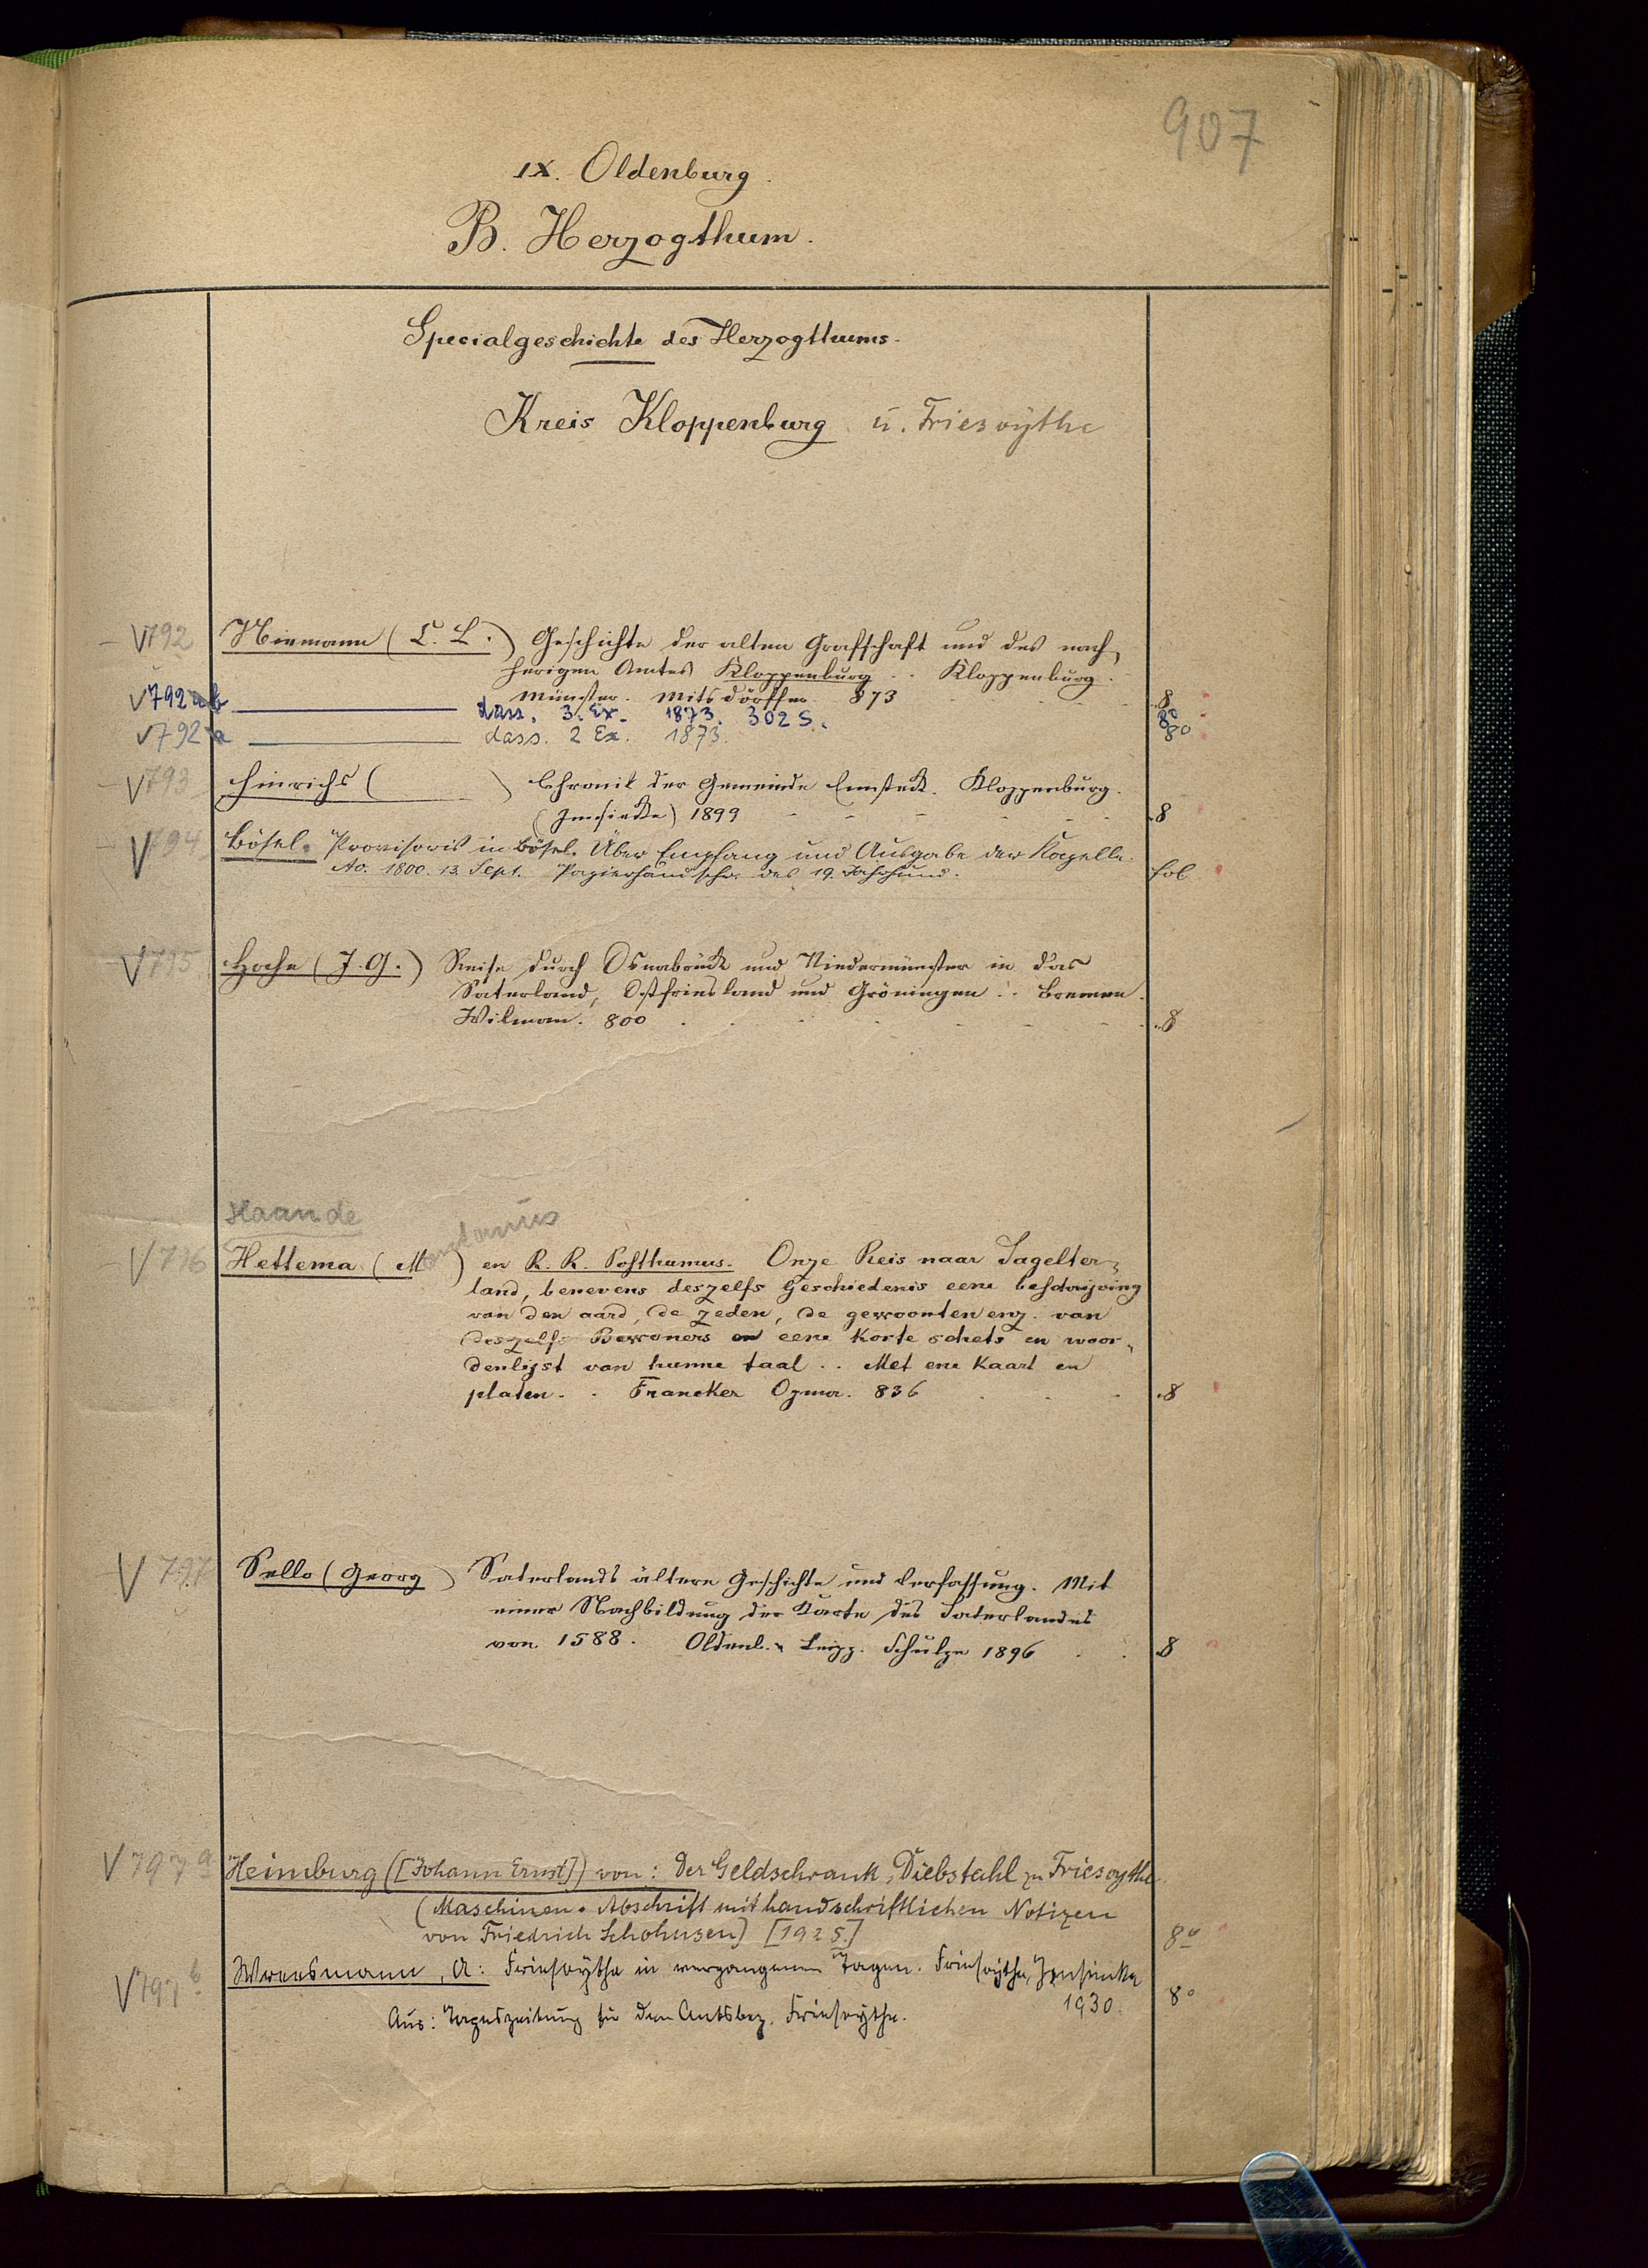 907
IX. Oldenburg.
B. Herzogthum.
Specialgeschichte des Herzogthums.
Kreis Kloppenburg u. Friesoythe
V792 Niemann (C. L.) Geschichte der alten Grafschaft und des nach-
herigen Amtes Kloppenburg . . Kloppenburg.
Münster. Mitsdörffer 873 8
V792b dass. 3. Ex. 1873. 302 S. 8o
V792a dass. 2 Ex. 1873. 8o
V793 Hinrichs ( ) Chronik der Gemeinde Emsteck. Kloppenburg.
(Imsiecke) 1899 8
V794 Bösel. Provisoris in Bösel. Über Empfang und Ausgabe der Kapelle.
Ao. 1800. 13. Sept. Papierhandschr. des 19. Jahrhund. fol.
V795 Hoche (J. G.) Reise durch Osnabrück und Niedermünster in das
Saterland, Ostfriesland und Gröningen . . Bremen.
Wilman. 800 8
Haan de
V796 Hettema (M ) en R. R. Posthumus. Onze Reis naar Sagelter-
land, benevens deszelfs Geschiedenis eene beschrijving
van den aard, de zeden, de gewoonten enz. van
deszelfs Bewoners en eene korte schets en woor-
denlijst van hunne taal . . Met ene Kaart en
platen . . Franeker Ypma. 836 8
V797 Sello (Georg) Saterlands ältere Geschichte und Verfassung. Mit
einer Nachbildung der Karte des Saterlandes
von 1588. Oldenb. u. Leipz. Schulze 1896 8
V797a Heimburg ([Johann Ernst]) von: Der Geldschrank-Diebstahl zu Friesoythe.
(Maschinen-Abschrift mit handschriftlichen Notizen
von Friedrich Schohusen) [1925.] 8o
V797b Wreesmann, A: Friesoythe in vergangenen Tagen. Friesoythe, Imsiecke
1930. 8o
Aus: Tageszeitung für den Amtsbez. Friesoythe.